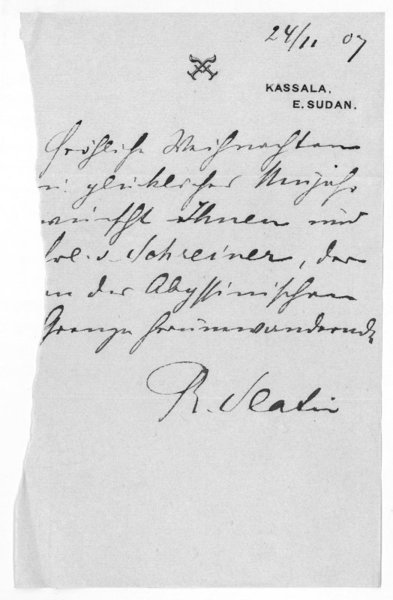 24/11 07
KASSALA.
E. SUDAN.
Fröhliche Weihnachten
u. glückliches Neujahr
wünscht Ihnen und
v. Schreiner, der
an der Abyssinischen
Grenze herumwandernde
R. Slatin